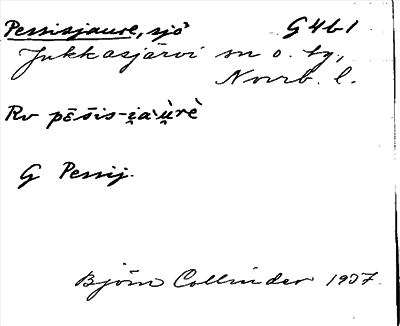 Pessisjaure, sjö G4b1
Jukkasjärvi sn o. tg,
Norrb. l.
Rv pēšis-i̯àu̯rè
G Pessij.
Björn Collinder 1937.